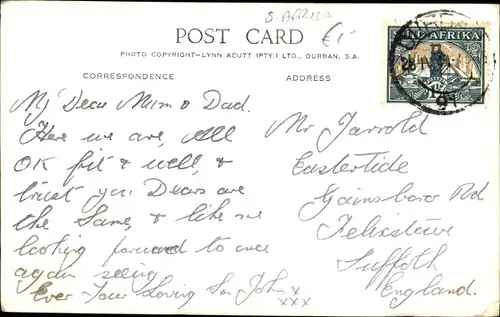 S. AFRICA
£1
POST CARD
PHOTO COPYRIGHT—LYNN ACUTT (PTY.) LTD., DURBAN, S.A.
CORRESPONDENCE
ADDRESS
SUID-AFRIKA
My Dear Mum & Dad.
Here we are, All
OK fit & well, &
trust you Dears are
the Same, & like me
looking forward to once
again seeing
Ever Your Loving Son John
xxxx
Mr Jarrold
Eastertide
Gainsboro Rd
Felixstowe
Suffolk
England.